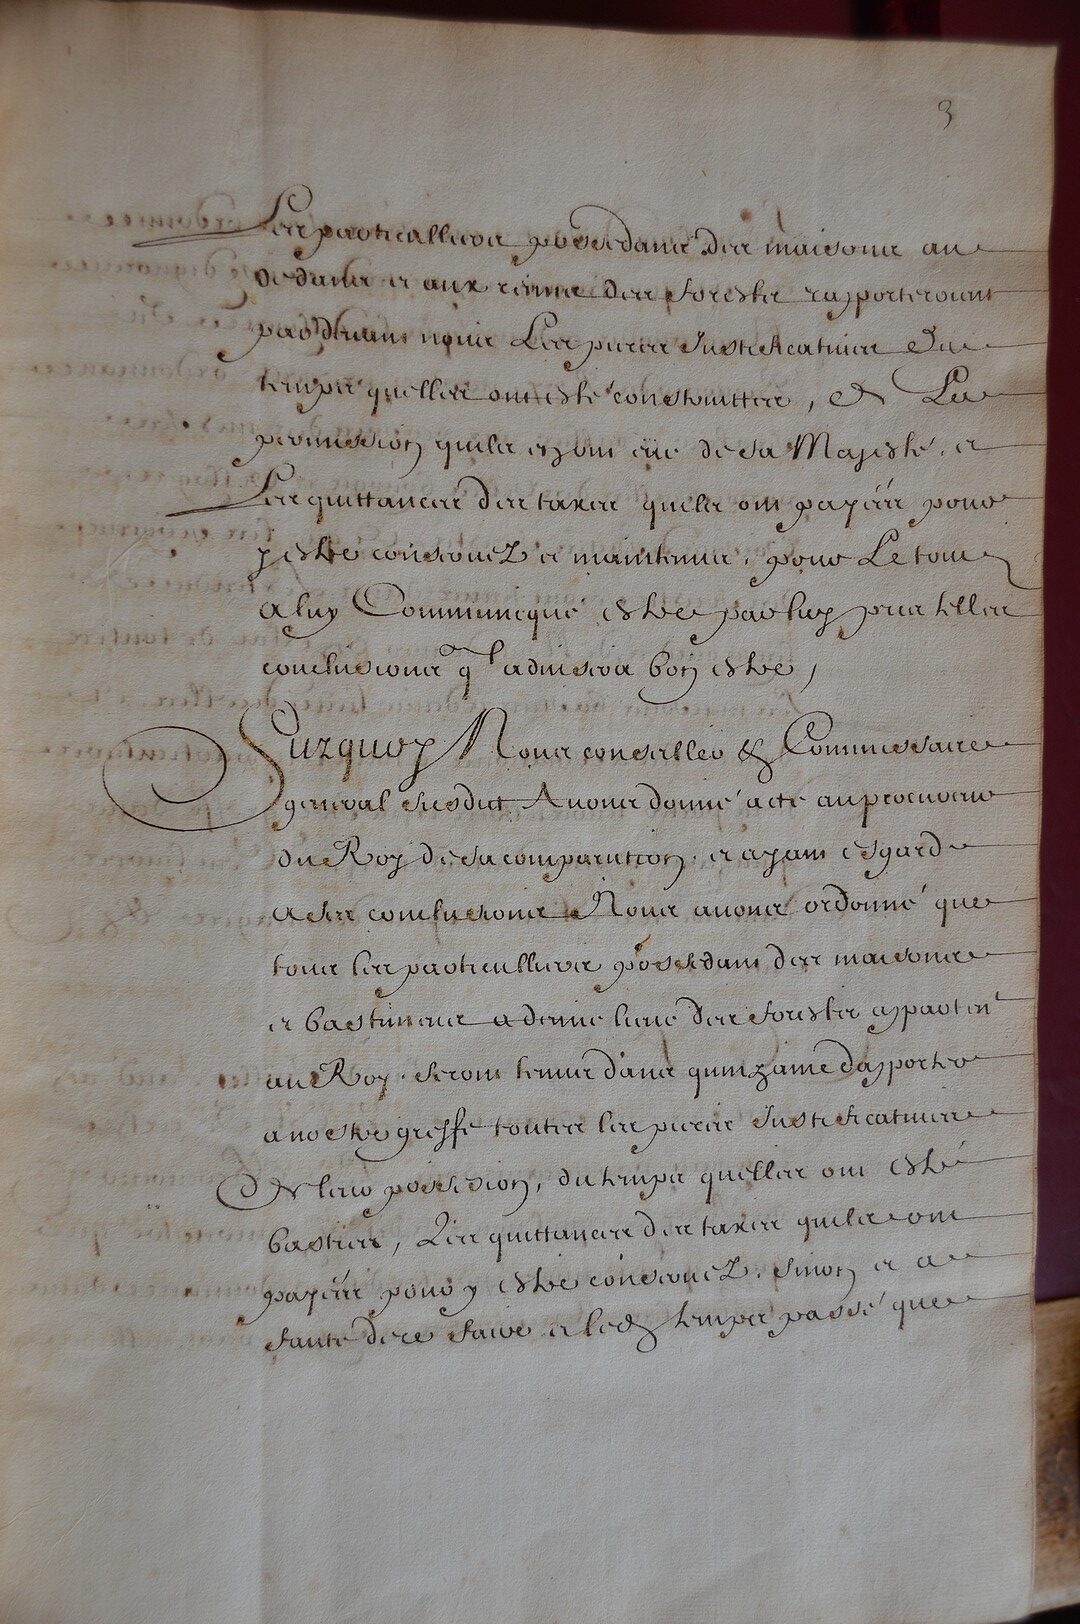 3
Les particulliers possedans des maisons au
dedans et aux reins des forests rapporteroient
pardevant nous Les pieces Justificatives du
temps quelles ont esté construittes, et La
permission quils en ont eüe de Sa Majesté, et
Les quittances des taxes quils ont payées pour
y estre conservez et maintenus, pour Le tout
a luy Communiqué estre par luy pris telles
conclusions ql advisera bon estre,
Surquoy Nous conseiller & Commissaire
general susdit Avons donné acte au procureur
du Roy de sa comparution, et ayant esgard
a ses conclusions Nous avons ordonné que
tous les particulliers possedans des maisons
et bastimens a demie lieue des forests appartent
au Roy, seront tenus dans quinzaine d'apporter
a nostre greffe touttes les pieces Justificatives
De leur possession, du temps quelles ont esté
basties, Les quittances des taxes quils ont
payées pour y estre conservez, sinon et a
faute de ce faire et led temps passé que